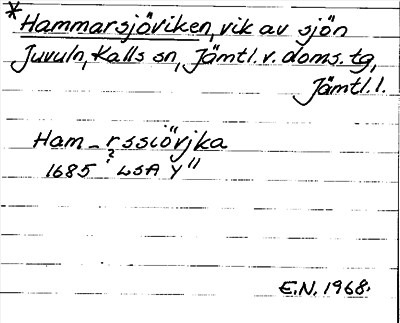 *Hammarsjöviken, vik av sjön
Juvuln, Kalls sn, Jämtl. v. doms. tg,
Jämtl. l.
Ham-rssiörjka
?
1685 LSA Y"
E.N. 1968.